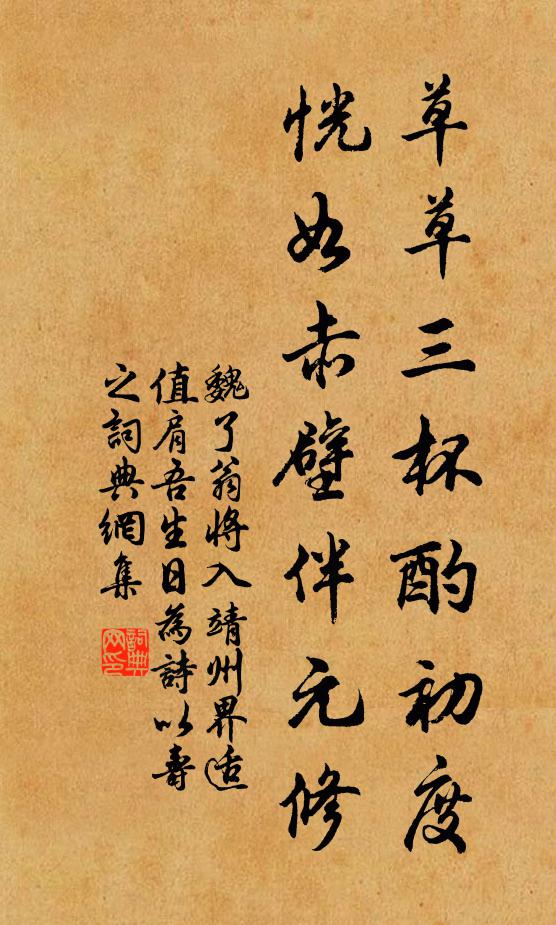 草草三杯酌初度
恍如赤壁伴元修
魏了翁將入靖州界适
值肩吾生日為詩以壽
之詞典網集
詞典
网印